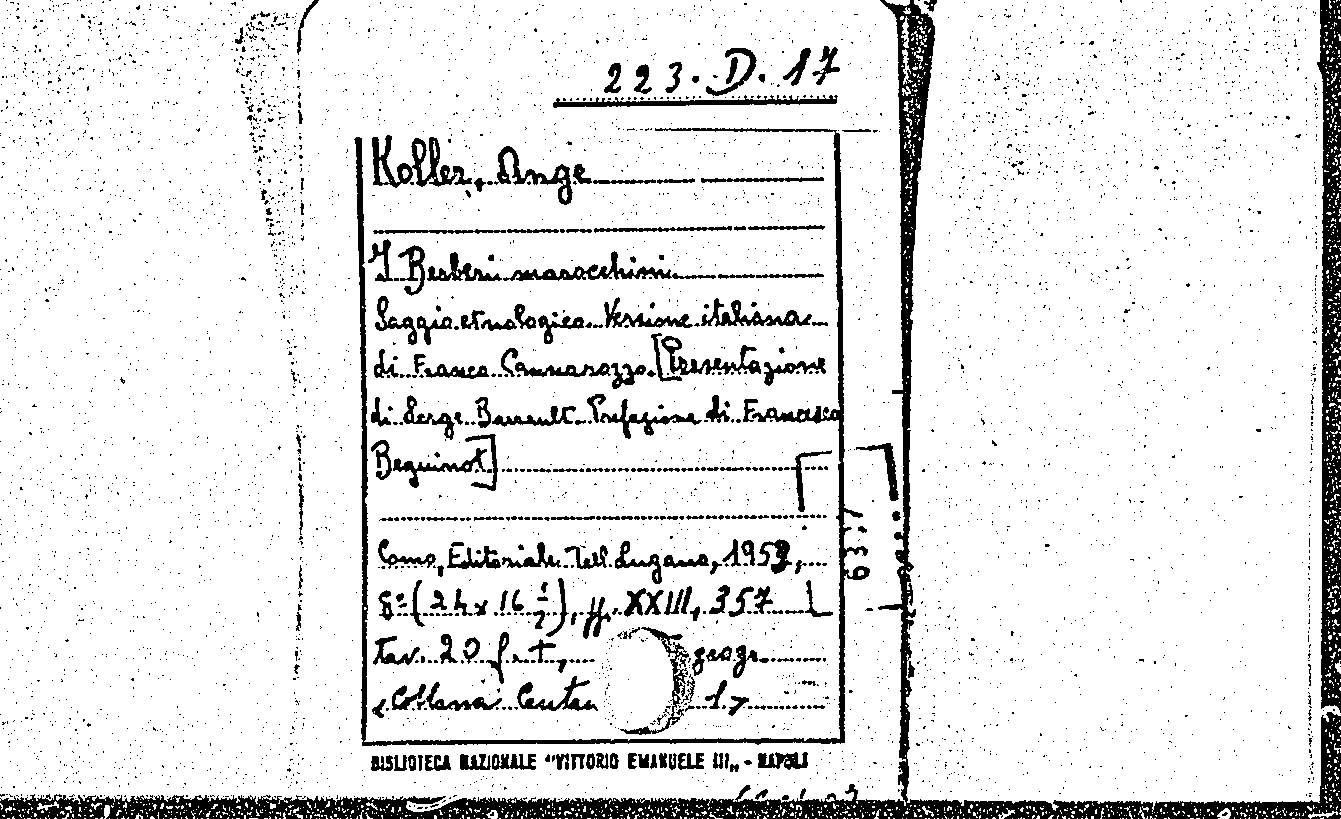 223. D. 17
Koller, Ange
I Berberi marocchini.
Saggio etnologico. Versione italiana
di Franco Cannarozzo. [Presentazione
di Serge Barrault. Prefazione di Francesco
Beguinot]
Como, Editoriale Tell Lugano, 1952,
8º (24 x 16 1/2), pp. XXIII, 357
tav. 20 f. t., geogr.
«Collana 1»
BIBLIOTECA NAZIONALE "VITTORIO EMANUELE III„ - NAPOLI